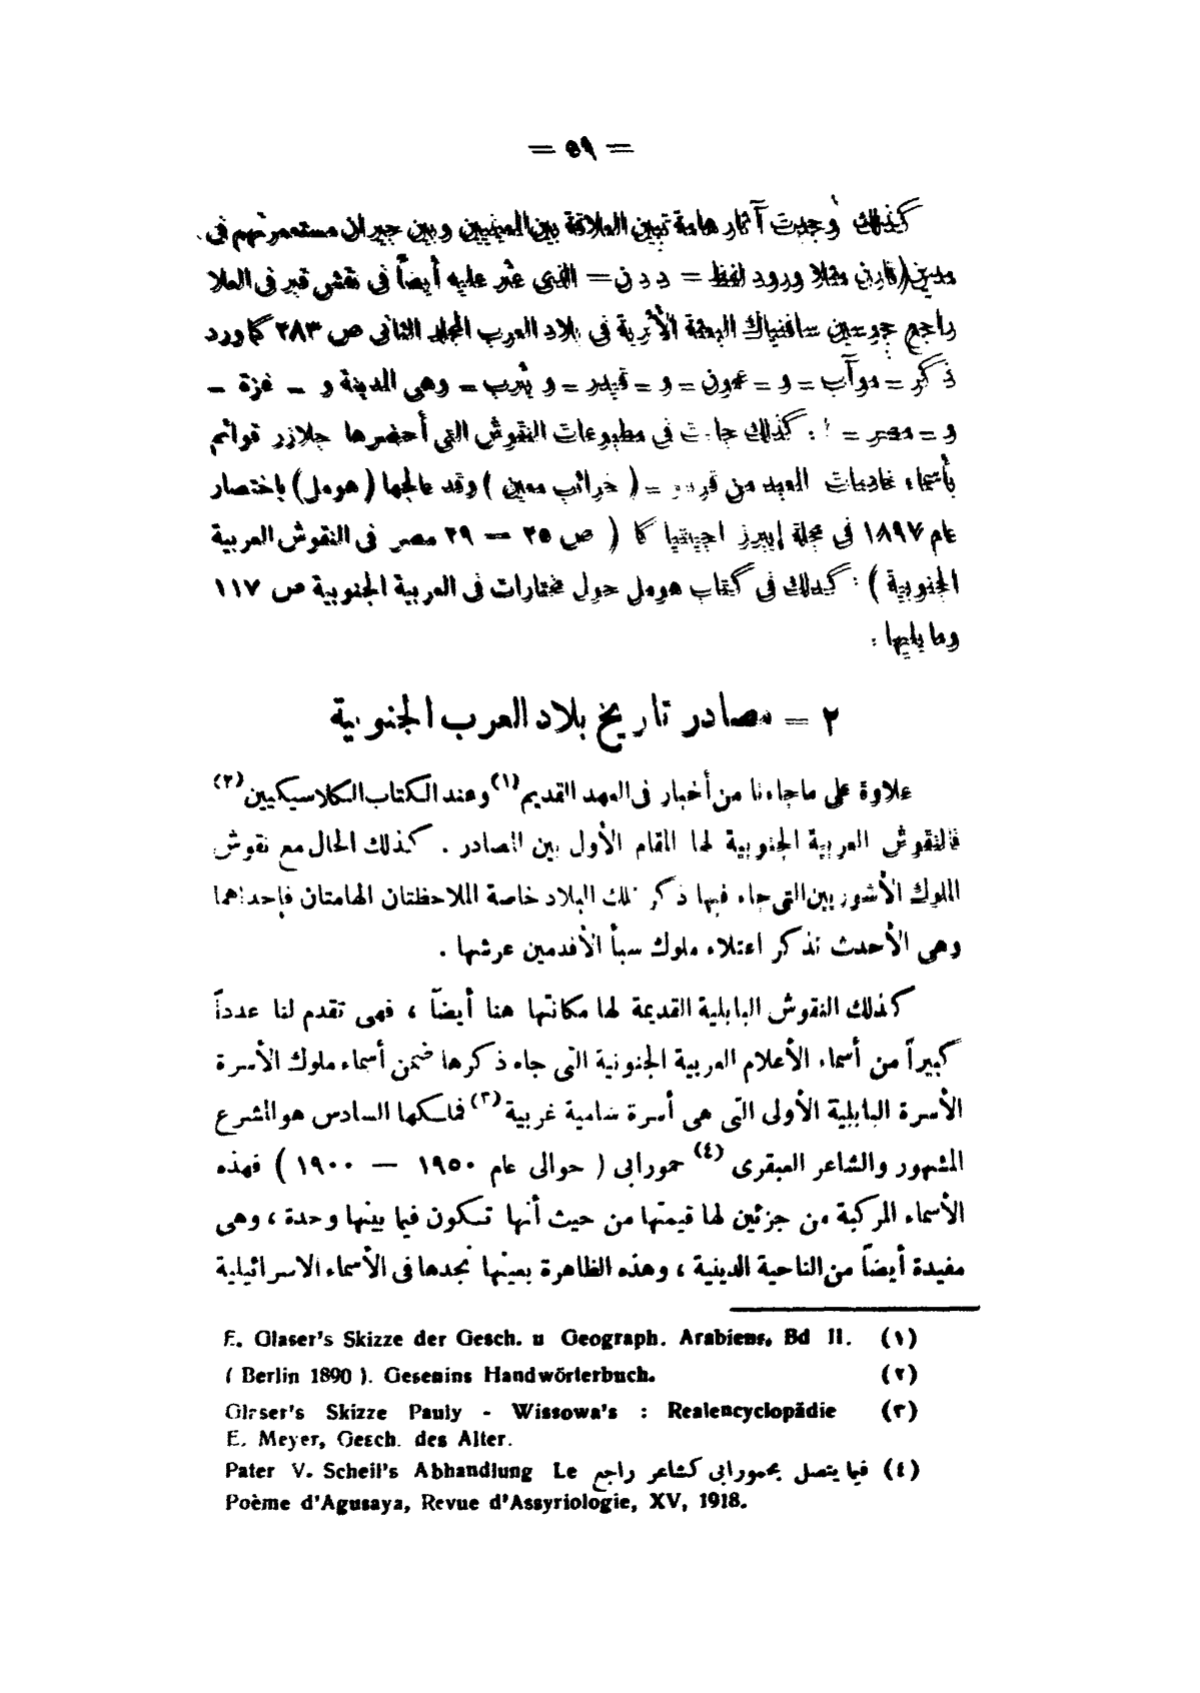 = ٥٩ =
كذلك وجدت آثار هامة تبين العلاقة بين المعينيين وبين جيران مستعمرتهم فى
مدين (قارن مثلا ورود لفظ = ددن = الذى عثر عليه أيضاً فى نقش قبر فى العلا
راجع جوسين سافنياك البعثة الأثرية فى بلاد العرب المجلد الثانى ص ٢٨٣ كما ورد
ذكر = موآب = و = عمون = و = قيدر = و يثرب = وهى المدينة و = غزة =
و = مصر = . كذلك جاءت فى مطبوعات النقوش التى أحضرها جلازر قوائم
بأسماء خادمات المعبد من = ( خرائب معين ) وقد عالجها (هومل) باختصار
عام ١٨٩٧ فى مجلة إيبرز اجيبتياكا ( ص ٢٥ — ٢٩ مصر فى النقوش العربية
الجنوبية ) . كذلك فى كتاب هومل حول مختارات فى العربية الجنوبية ص ١١٧
وما يليها .
٢ = مصادر تاريخ بلاد العرب الجنوبية
علاوة على ماجاءنا من أخبار فى العهد القديم (١) وعند الكتاب الكلاسيكيين (٢)
فالنقوش العربية الجنوبية لها المقام الأول بين المصادر . كذلك الحال مع نقوش
الملوك الأشوريين التى جاء فيها ذكر تلك البلاد خاصة الملاحظتان الهامتان فإحداهما
وهى الأحدث تذكر اعتلاء ملوك سبأ الأقدمين عرشها .
كذلك النقوش البابلية القديمة لها مكانتها هنا أيضاً ، فهى تقدم لنا عدداً
كبيراً من أسماء الأعلام العربية الجنونية التى جاء ذكرها ضمن أسماء ملوك الأسرة
الأسرة البابلية الأولى التى هى أسرة سامية غربية (٣) فملكها السادس هو المشرع
المشهور والشاعر العبقرى (٤) حمورابى ( حوالى عام ١٩٥٠ — ١٩٠٠ ) فهذه
الأسماء المركبة من جزئين لها قيمتها من حيث أنها تكون فيما بينها وحدة ، وهى
مفيدة أيضاً من الناحية الدينية ، وهذه الظاهرة بعينها نجدها فى الأسماء الاسرائيلية
(١) E. Glaser's Skizze der Gesch. u Geograph. Arabiens, Bd II.
(٢) ( Berlin 1890 ). Gesenins Handwörterbuch.
(٣) Glaser's Skizze Pauly - Wissowa's : Realencyclopädie
E. Meyer, Gesch. des Alter.
(٤) فيما يتصل بحمورابى كشاعر راجع Pater V. Scheil's Abhandlung Le
Poème d'Agusaya, Revue d'Assyriologie, XV, 1918.